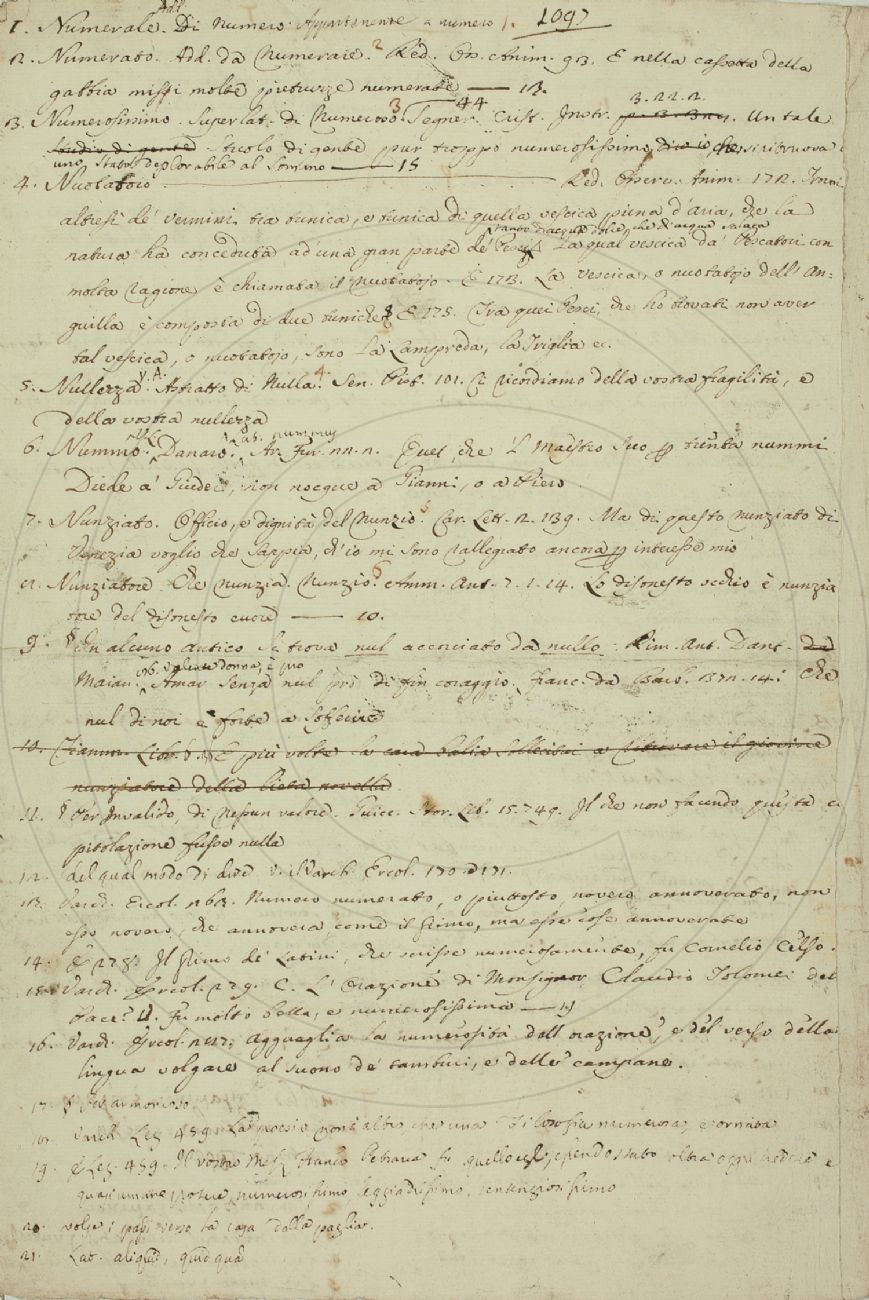 1097
1. Numerale. Add. Di Numero. Appartenente a numero 1.
2. Numerato. Add. da Numerare. 2 Red. Oss. Anim. 93. E nella cassetta della
gabbia missi molte pietruzze numerate — 13.
3. Numerosissimo. Superlat. di Numeroso. 3 Segner. Crist. Instr. 3. 22. 2. Un tale
stuolo di gente pur troppo numerosissimo, che si ritruova
uno stato deplorabile al sommo — 15
4. Nuotatoio — Red. Osserv. Anim. 172.
altresì de' vermini tra tunica, e tunica di quella vescica piena d'aria, che la
tanto d'acqua dolce, che di acqua salata
natura ha conceduta ad una gran parte de' Pesci La qual vescica da' Pescatori con
molta ragione è chiamata il nuotatojo. E 173. La vescica, o nuotatojo dell' An=
guilla è composta di due tuniche E 175. Tra quei Pesci, che ho trovati non aver
tal vescica, o nuotatojo, sono La Lampreda, la Triglia ec.
5. Nullezza. V. A. Astratto di Nulla. 4. Sen. Pist. 101. Ci ricordiamo della vostra fragilità, e
della vostra nullezza
6. Nummo. Danaro. Lat. nummus Quel, che 'l Maestro suo trenta nummi
Diede a' Giudei, non nocque a Gianni, o a Piero.
7. Nunziato. Officio, e dignità del Nunzio. 5 Car. Lett. 2. 139. Ma di questo nunziato di
Venezia voglio che sappia, ch'io mi sono rallegrato ancora interesse mio
8. Nunziatore. Che nunzia. Nunzio. 6 Amm. Ant. 7. 1. 14. Lo disonesto occhio è nunzia
tore del disonesto cuore — 10.
9. § In alcuno antico si trova nul accorciato da nullo. Rim. Ant. Dant. da
Maian. valente donna, è pro
Amar senza nul prò di fin coraggio. Franc. da Barb. 132. 14. Che
nul di noi è forte a sofferire
10. E più volte la cara balia sollecitai a ritrovare il giovine
nunziatore della lieta novella.
11. § Per Invalido, di Nessun valore. Guicc. Stor. Lib. 15. 749. Il che non facendo questa c
pitolazione fusse nulla
12. del qual modo di dire v. il Varch. Ercol. 170. 171.
13. Varch. Ercol. 263. Numero numerato, o piuttosto, novero annoverato, non
esso novero, che annovera, come il primo, ma esse cose annoverate
14. E 278. Il primo de' Latini, che scrisse numerosamente, fu Cornelio Celso.
15. Varch. Ercol. 29. C. L' Orazione di Monsignor Claudio Tolomei del
Pace. Fu molto bella, e numerosissima — 19
16. Varch. Ercol. 217. Agguaglia la numerosità dell' orazione, e del verso della
lingua volgare al suono de' tamburi, e delle campane.
17. § Per armonioso
18. Varch. Lez. 459. La poesia non è altro che una Filosofia numerosa, e ornata
19. E Lez. 459. Il vostro Mess. Franco Petrarca fu quello essendo stato oltra ogni credere e
quasi umano potere, numerosissimo, leggiadrissimo, sentenziosissimo
20. volse i passi verso la casa della paglia.
21. Lat. aliquid, quidquam